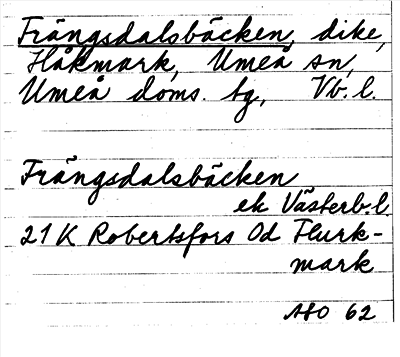 Frängsdalsbäcken, dike,
Håkmark, Umeå sn,
Umeå doms. tg, Vb. l.
Frängsdalsbäcken
ek Västerb. l
21 K Robertsfors Od Flurk-
mark
62